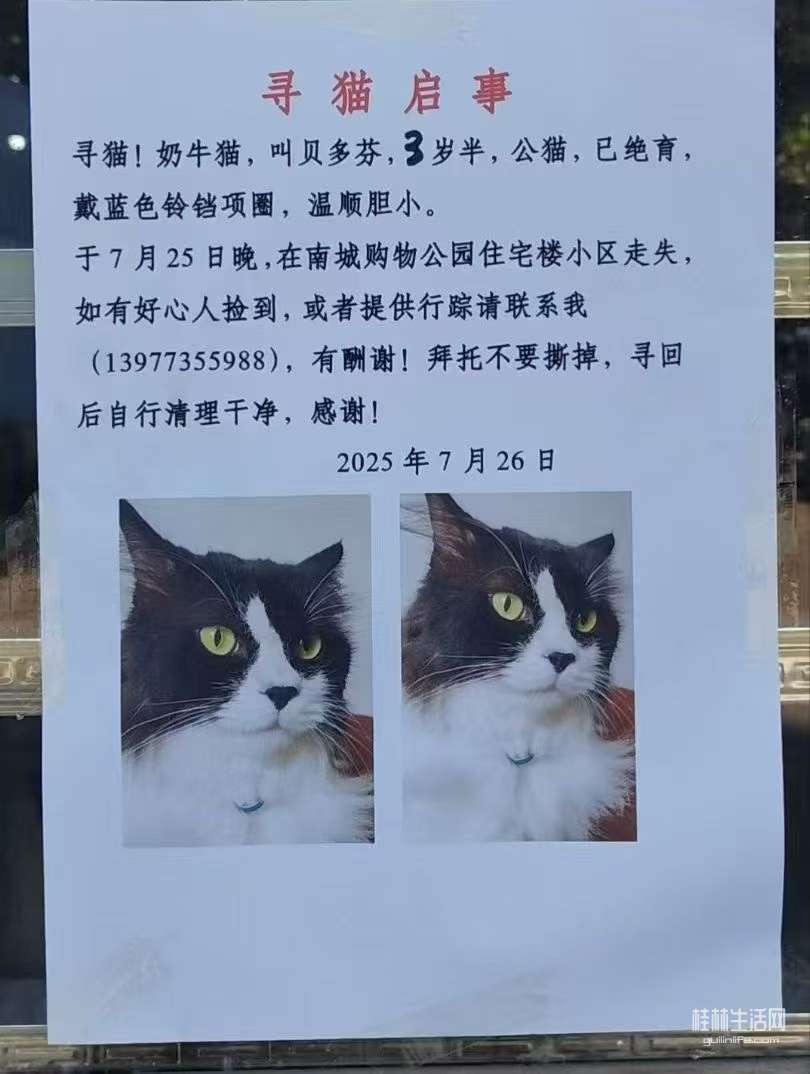 寻猫启事
寻猫！奶牛猫，叫贝多芬，3岁半，公猫，已绝育，
戴蓝色铃铛项圈，温顺胆小。
于7月25日晚，在南城购物公园住宅楼小区走失，
如有好心人捡到，或者提供行踪请联系我
（13977355988），有酬谢！拜托不要撕掉，寻回
后自行清理干净，感谢！
2025年7月26日
桂林生活网
guilinlife.com